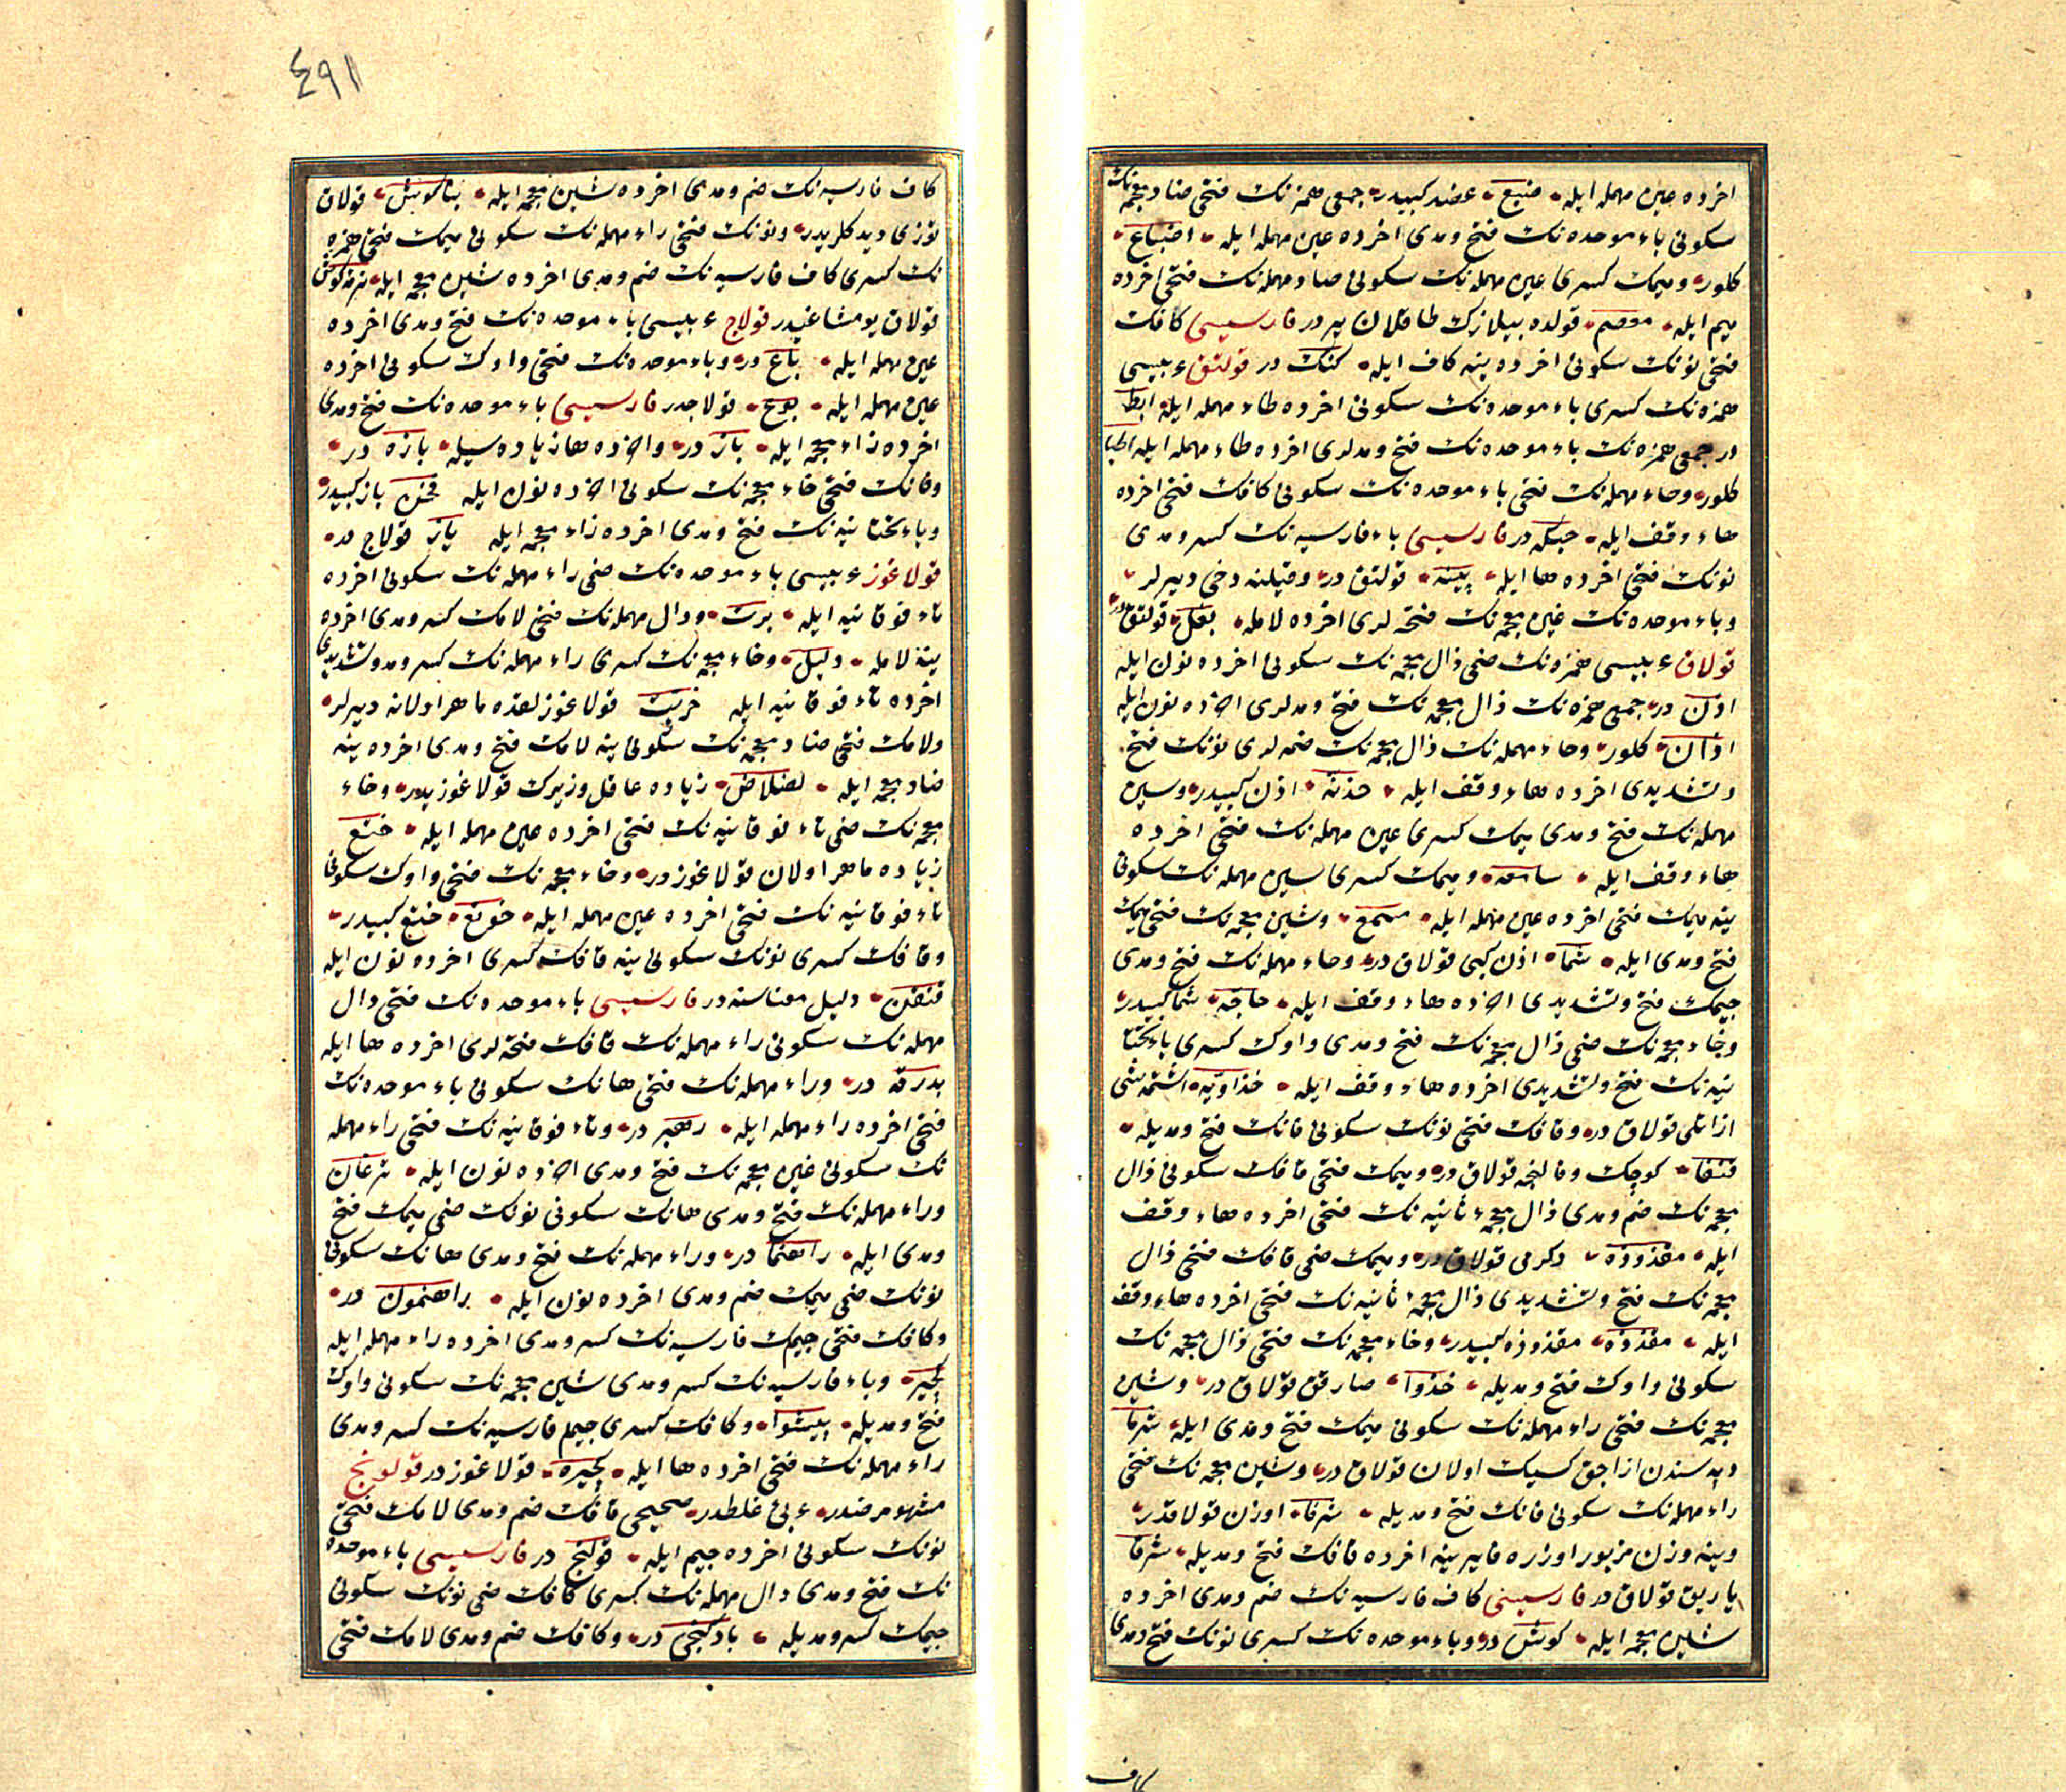 اخرده عین مهمله ایله ضبع عضد کبیدر جمعی همزه نک فتحی ضاد معجمه نک
سکونی باء موحده نک فتح ومدی اخرده عین مهمله ایله اضباع
کلور ومیمک کسری عین مهمله نک سکونی صاد مهمله نک فتحی اخرده
میم ایله معصم قولده بیلازک طاقلان یر در فارسیسی کافک
فتحی نونک سکونی اخرده ینه کاف ایله کنک در قولتق عربیسی
همزه نک کسری باء موحده نک سکونی اخرده طاء مهمله ایله ابط
در جمعی همزه نک باء موحده نک فتح ومدلری اخرده طاء مهمله ایله
کلور وحاء مهمله نک فتحی باء موحده نک سکونی کافک فتحی اخرده
هاء وقف ایله حبکه در فارسیسی باء فارسیه نک کسر ومدی
نونک فتحی اخرده ها ایله پینه قولتق در وقیلنه دخی دیرلر
وباء موحده نک غین معجمه نک فتحه لری اخرده لامله بغل قولتق در
قولاق عربیسی همزه نک ضمی ذال معجمه نک سکونی اخرده نون ایله
اذن در جمعی همزه نک ذال معجمه نک فتح ومدلری اخرده نون ایله
اذان کلور وحاء مهمله نک ذال معجمه نک ضمه لری نونک فتح
وتشدیدی اخرده هاء وقف ایله حذنه اذن کبیدر وسین
مهمله نک فتح ومدی میمک کسری عین مهمله نک فتحی اخرده
هاء وقف ایله سامعه ومیمک کسری سین مهمله نک سکونی
ینه میمک فتحی اخرده عین مهمله ایله مسمع وشین معجمه نک فتحی میمک
فتح ومدی ایله شما اذن کبی قولاق در وحاء مهمله نک فتح ومدی
جیمک فتح وتشدیدی اخرده هاء وقف ایله حاجه شما کبیدر
وخاء معجمه نک ضمی ذال معجمه نک فتح ومدی واوک کسری یاء تحتا
نیه نک فتح وتشدیدی اخرده هاء وقف ایله خذاویه اشتمه سی
از اتلی قولاق در وقافک فتحی نونک سکونی فانک فتح ومدیله
قنفا کوچک وقالنجه قولاق در ومیمک فتحی قافک سکونی ذال
معجمه نک ضم ومدی ذال معجمه ثانیه نک فتحی اخرده هاء وقف
ایله مقذوذه دکرمی قولاق در ومیمک ضمی قافک فتحی ذال
معجمه نک فتح وتشدیدی ذال معجمه ثانیه نک فتحی اخرده هاء وقف
ایله مقذذه مقذوذه کبیدر وخاء معجمه نک فتحی ذال معجمه نک
سکونی واوک فتح ومدیله خذوا صارقق قولاق در وشین
معجمه نک فتحی راء مهمله نک سکونی میمک فتح ومدی ایله شرما
دپه سندن ازاجق کسیک اولان قولاق در وشین معجمه نک فتحی
راء مهمله نک سکونی فانک فتح ومدیله شرفا اوزن قولاقدر
وینه وزن مزبور اوزره فا یرینه اخرده قافک فتح ومدیله شرقا
یاریق قولاق در فارسیسی کاف فارسیه نک ضم ومدی اخرده
شین معجمه ایله کوش در وباء موحده نک کسری نونک فتح ومدی
کاف
٤٩١
کاف فارسیه نک ضم ومدی اخرده شین معجمه ایله بناکوش قولاق
توزی دیدکلریدر ونونک فتحی راء مهمله نک سکونی میمک فتحی همزه
نک کسری کاف فارسیه نک ضم ومدی اخرده شین معجمه ایله نرمه کوش
قولاق یومشاغیدر قولاج عربیسی باء موحده نک فتح ومدی اخرده
عین مهمله ایله باع در وباء موحده نک فتحی واوک سکونی اخرده
عین مهمله ایله بوع قولاجدر فارسیسی باء موحده نک فتح ومدی
اخرده زاء معجمه ایله باز در واخرده ها زیاده سیله بازه در
وفانک فتحی خاء معجمه نک سکونی اخرده نون ایله فخن باز کبیدر
ویاء تحتانیه نک فتح ومدی اخرده زاء معجمه ایله یاز قولاج در
قولاغوز عربیسی باء موحده نک ضمی راء مهمله نک سکونی اخرده
تاء فوقانیه ایله برت ودال مهمله نک فتحی لامک کسر ومدی اخرده
ینه لامله دلیل وخاء معجمه نک کسری راء مهمله نک کسر ومد وتشدیدی
اخرده تاء فوقانیه ایله خریت قولاغوزلقده ماهر اولانه دیرلر
ولامک فتحی ضاد معجمه نک سکونی ینه لامک فتح ومدی اخرده ینه
ضاد معجمه ایله لضلاض زیاده عاقل وزیرک قولاغوزیدر وخاء
معجمه نک ضمی تاء فوقانیه نک فتحی اخرده عین مهمله ایله ختع
زیاده ماهر اولان قولاغوز در وخاء معجمه نک فتحی واوک سکونی
تاء فوقانیه نک فتحی اخرده عین مهمله ایله خوتع ختع کبیدر
وقافک کسری نونک سکونی ینه قافک کسری اخرده نون ایله
قنقن دلیل معناسنه در فارسیسی باء موحده نک فتحی دال
مهمله نک سکونی راء مهمله نک قافک فتحه لری اخرده ها ایله
بدرقه در وراء مهمله نک فتحی هانک سکونی باء موحده نک
فتحی اخرده راء مهمله ایله رهبر در وتاء فوقانیه نک فتحی راء مهمله
نک سکونی غین معجمه نک فتح ومدی اخرده نون ایله ترغان
وراء مهمله نک فتح ومدی هانک سکونی نونک ضمی میمک فتح
ومدی ایله راهنما در وراء مهمله نک فتح ومدی هانک سکونی
نونک ضمی میمک ضم ومدی اخرده نون ایله راهنمون در
وکافک فتحی جیمک فارسیه نک کسر ومدی اخرده راء مهمله ایله
کچیر وباء فارسیه نک کسر ومدی شین معجمه نک سکونی واوک
فتح ومدیله پیشوا وکافک کسری جیم فارسیه نک کسر ومدی
راء مهمله نک فتحی اخرده ها ایله کچیره قولاغوز در قولونج
مشهور مرضدر عربی غلطدر صحیحی قافک ضم ومدی لامک فتحی
نونک سکونی اخرده جیم ایله قولنج در فارسیسی باء موحده
نک فتح ومدی دال مهمله نک کسری کافک ضمی نونک سکونی
جیمک کسر ومدیله بادکنجی در وکافک ضم ومدی لامک فتحی